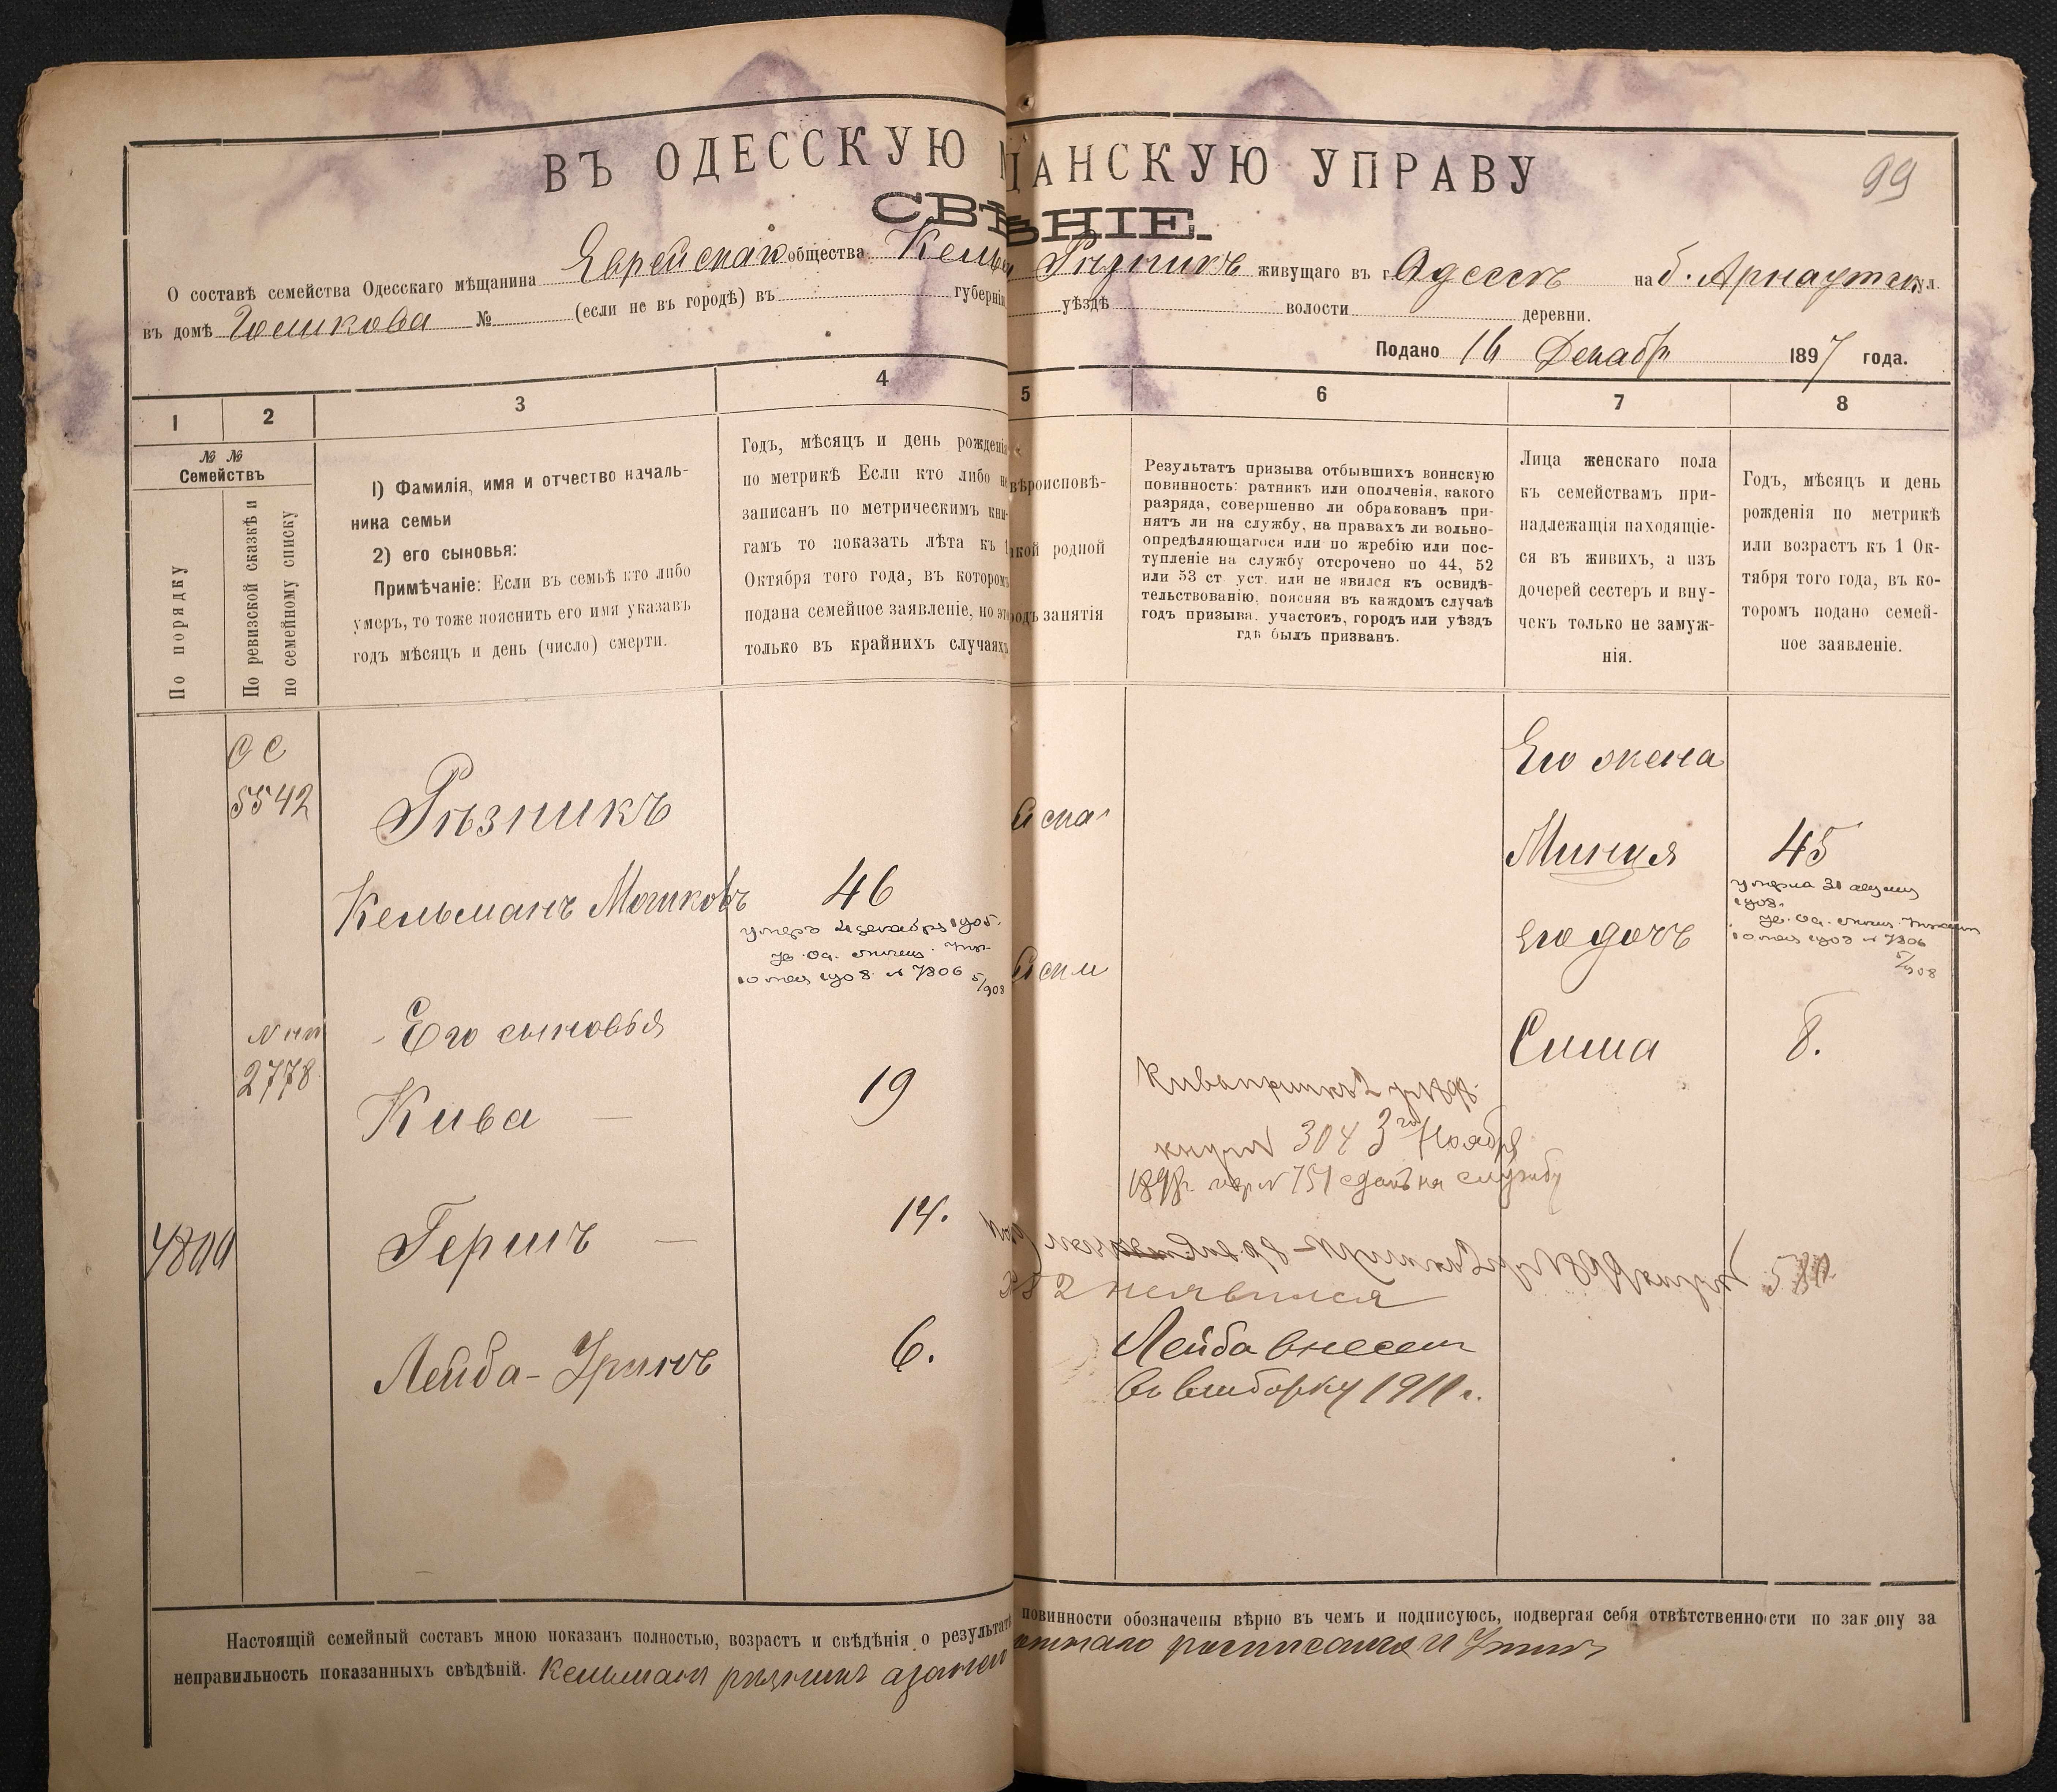 99
ВЪ ОДЕССКУЮ ЩАНСКУЮ УПРАВУ
СВѢНІЕ.
О составѣ семейства Одесскаго мѣщанина Еврейскаго общества Кельман Рѣзникъ живущаго въ г. Одессѣ на б. Арнаутск ул.
въ домѣ Голикова № (если не въ городѣ) въ губерніи уѣздѣ волости деревни.
Подано 16 Декабр 1897 года.
1 2 3 4 5 6 7 8
№ № Семействъ
По порядку
По ревизской сказкѣ и по семейному списку
1) Фамилія, имя и отчество началь-
ника семьи
2) его сыновья:
Примѣчаніе: Если въ семьѣ кто либо
умеръ, то тоже пояснить его имя указавъ
годъ мѣсяцъ и день (число) смерти.
Годъ, мѣсяцъ и день рожденія
по метрикѣ Если кто либо не
записанъ по метрическимъ кни-
гамъ то показать лѣта къ 1
Октября того года, въ которомъ
подана семейное заявленіе, но это
только въ крайнихъ случаяхъ
вѣроисповѣ-
кой родной
родъ занятія
Результатъ призыва отбывшихъ воинскую
повинность: ратникъ или ополченія, какого
разряда, совершенно ли обракованъ при-
нятъ ли на службу, на правахъ ли вольно-
опредѣляющагося или по жребію или пос-
тупленіе на службу отсрочено по 44, 52
или 53 ст. уст. или не явился къ освидѣ-
тельствованію, поясняя въ каждомъ случаѣ
годъ призыва, участокъ, городъ или уѣздъ
гдѣ былъ призванъ.
Лица женскаго пола
къ семействамъ при-
надлежащія находящіе-
ся въ живихъ, а изъ
дочерей сестеръ и вну-
чекъ только не замуж-
нія.
Годъ, мѣсяцъ и день
рожденія по метрикѣ
или возрастъ къ 1 Ок-
тября того года, въ ко-
торомъ подано семей-
ное заявленіе.
СС
5542
Рѣзникъ
Его жена
Кельманъ Мошковъ 46
Минця 45
умеръ 2 декабря 1905.
10 мая 1908 № 7806 5/908
умерла 31
1908.
10 мая 1908 № 7806
5/908
его дочь
Сима 8.
Его сыновья
2778
Кива — 19
книги № 304 3го Ноября
1898 г. № 751 сданъ на службу
4800
Гершъ — 14.
неявился
Лейба-Урынъ 6.
Лейба внесенъ
въ выборку 1911 г.
Настоящій семейный составъ мною показанъ полностью, возрастъ и свѣдѣнія о результатѣ повинности обозначены вѣрно въ чемъ и подписуюсь, подвергая себя отвѣтственности по закону за
неправильность показанныхъ свѣдѣній. Кельманъ рѣзникъ азанего росписался